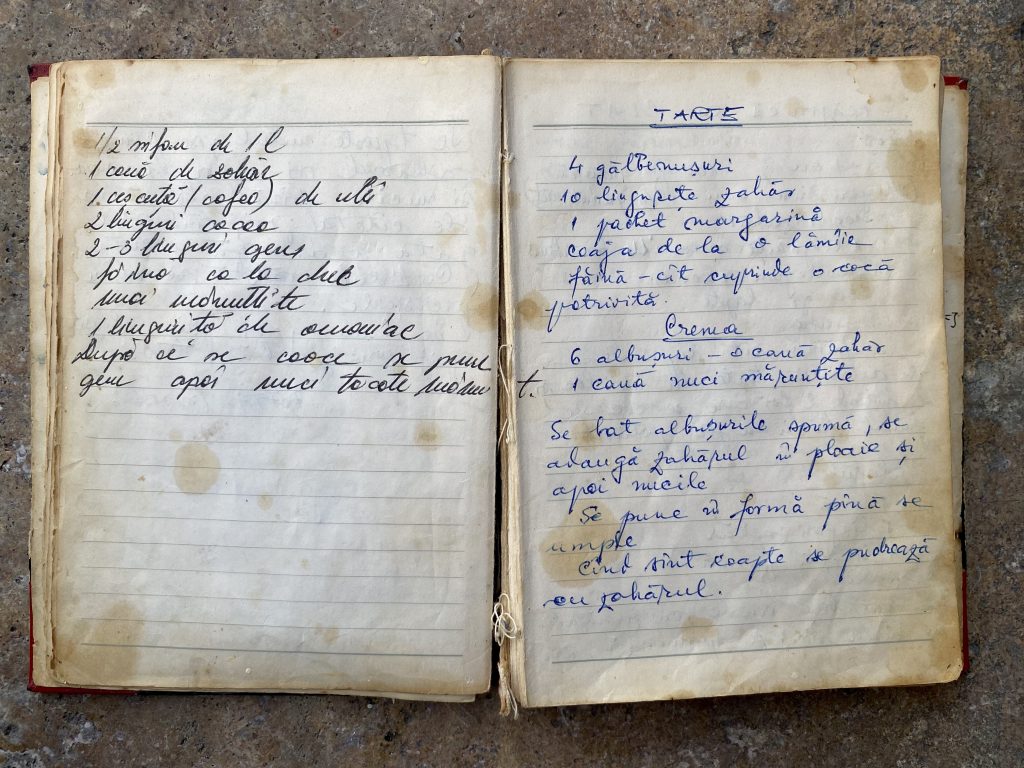 1/2 sifon de 1 l
1 cană de zahăr
1 cescută (cafea) de ulei
2 linguri cacao
2-3 linguri gem
făină ca la chec
nuci mărunțite
1 linguriță de amoniac
După ce se coace se pune
gem apoi nuci tocate mărunt.
TARTE
4 gălbenușuri
10 lingurițe zahăr
1 pachet margarină
coaja de la o lămîie
făină - cît cuprinde o cocă
potrivită.
Crema
6 albușuri - o cană zahăr
1 cană nuci mărunțite
Se bat albușurile spumă, se
adaugă zahărul în ploaie și
apoi nucile
Se pune în formă pînă se
umple
Cînd sînt coapte se pudrează
cu zahărul.